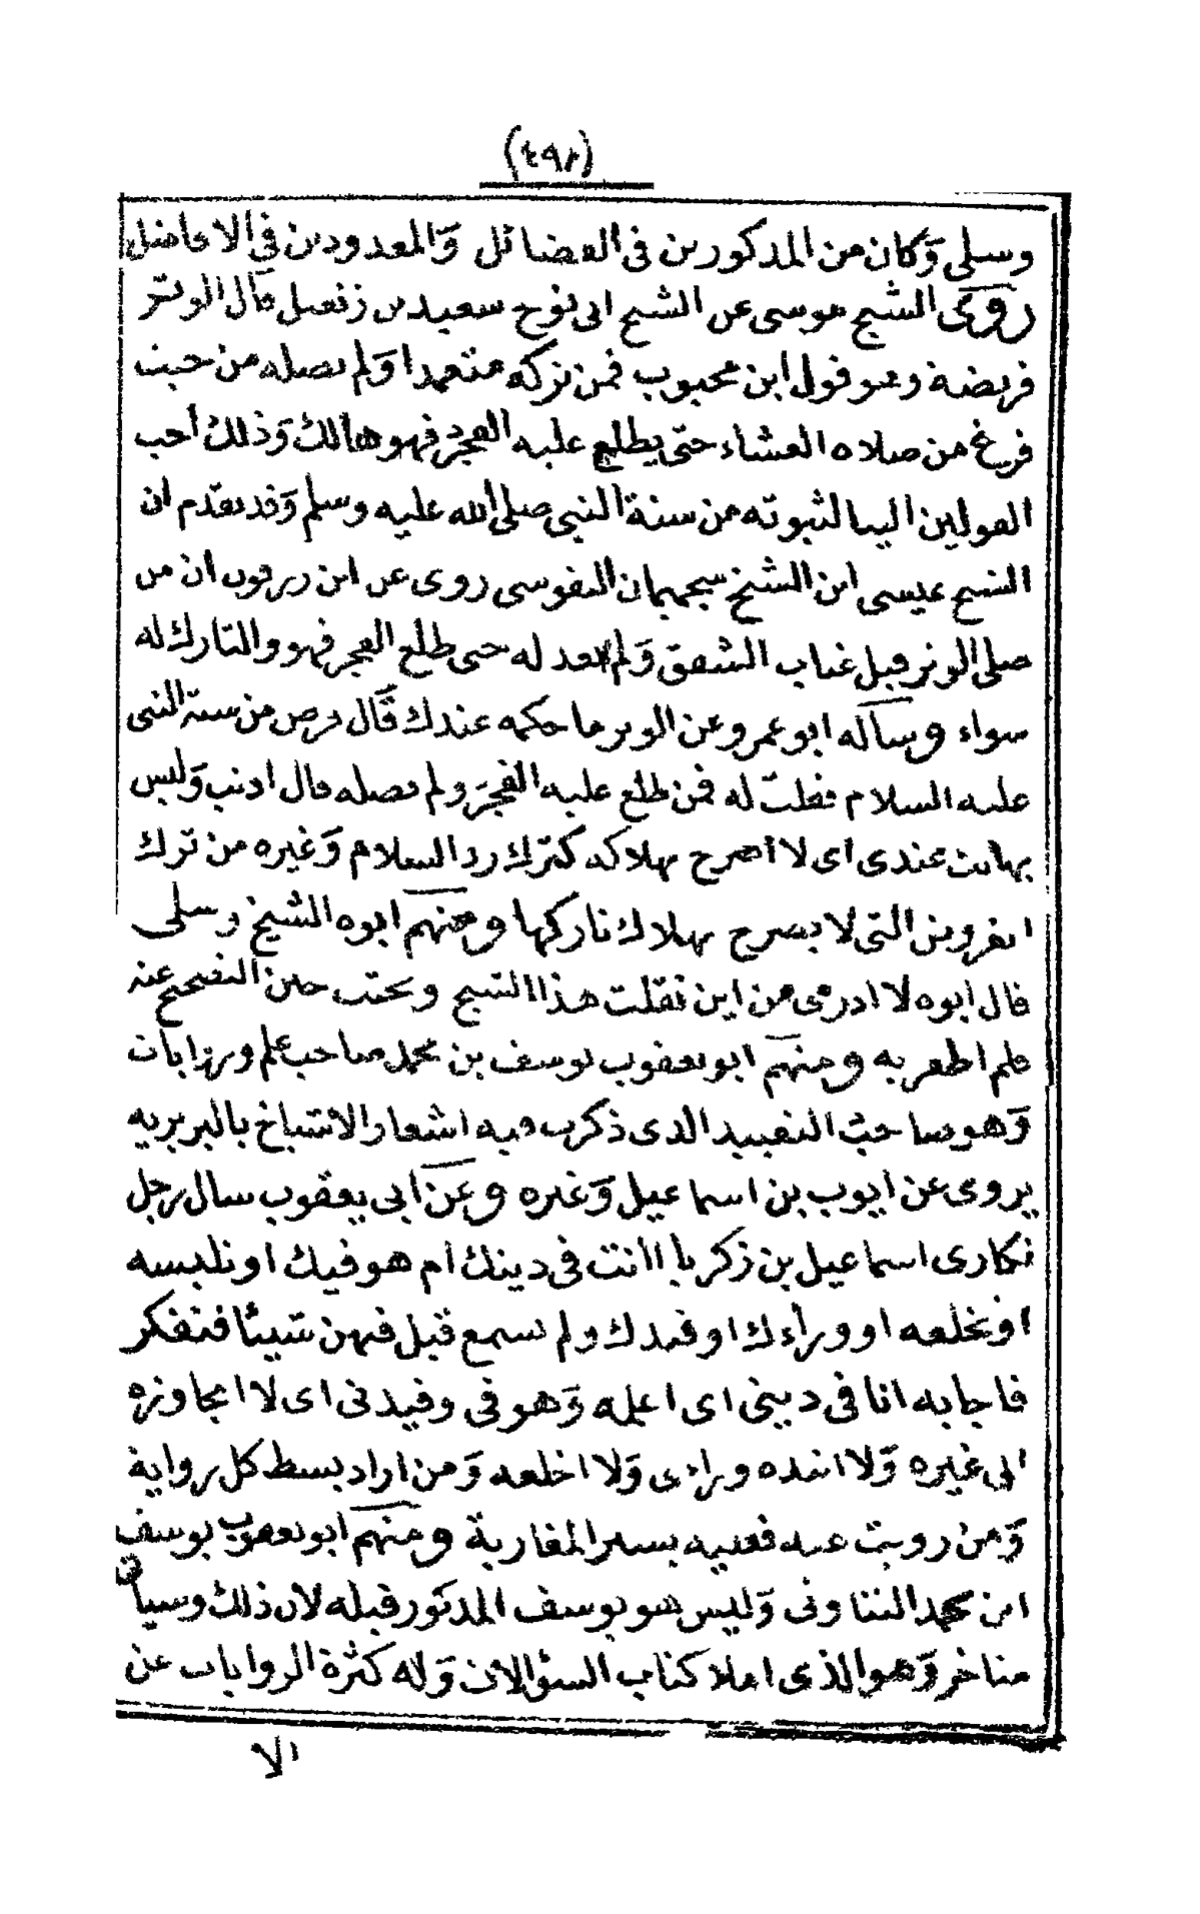 (٤٩٢)
وسلى وكان من المذكورين فى الفضائل والمعدودين فى الافاضل
روى الشيخ موسى عن الشيخ ابى نوح سعيد بن زنغيل قال الوتر
فريضة وهو قول ابن محبوب فمن تركه متعمدا ولم يصله من حيث
فرغ من صلاه العشاء حتى يطلع عليه الفجر فهو هالك وذلك احب
القولين الينا لثبوته من سنة النبى صلى الله عليه وسلم وقد تقدم ان
الشيخ عيسى ابن الشيخ سجميمان النفوسى روى عن ابن زرقون ان من
صلى الوتر قبل غياب الشفق ولم يعد له حتى طلع الفجر فهو والتارك له
سواء وسأله ابو عمرو عن الوتر ما حكمه عندك قال فرض من سنة النبى
عليه السلام فقلت له فمن طلع عليه الفجر ولم يصله قال اذنب وليس
بهالك عندى اى لا اصرح بهلاكه كترك رد السلام وغيره من ترك
الفروض التى لا يصرح بهلاك تاركها ومنهم ابوه الشيخ وسلى
قال ابوه لا ادرى من اين نقلت هذا الشيخ وبحثت حين التصحيح عنه
فلم اظفر به ومنهم ابو يعقوب يوسف بن محمد صاحب علم وروايات
وهو صاحب التقييد الذى ذكرت فيه اشعار الاشياخ بالبربريه
يروى عن ايوب بن اسماعيل وغيره وعن ابى يعقوب سال رجل
نكارى اسماعيل بن زكريا اانت فى دينك ام هو فيك او تلبسه
او تخلعه او وراءك او قدك ولم نسمع قبل فيهن شيئا فتفكر
فاجابه انا فى دينى اى اعلمه وهو فى وقيدنى اى لا اجاوزه
الى غيره ولا انبذه وراءى ولا اخلعه ومن اراد بسط كل رواية
ومن رويت عنه فعليه بسير المغاربة ومنهم ابو يعقوب يوسف
ابن محمد التناوتى وليس هو يوسف المذكور قبله لان ذلك وسيانى
متاخر وهو الذى املا كتاب السؤالات وله كثرة الروايات عن
الا